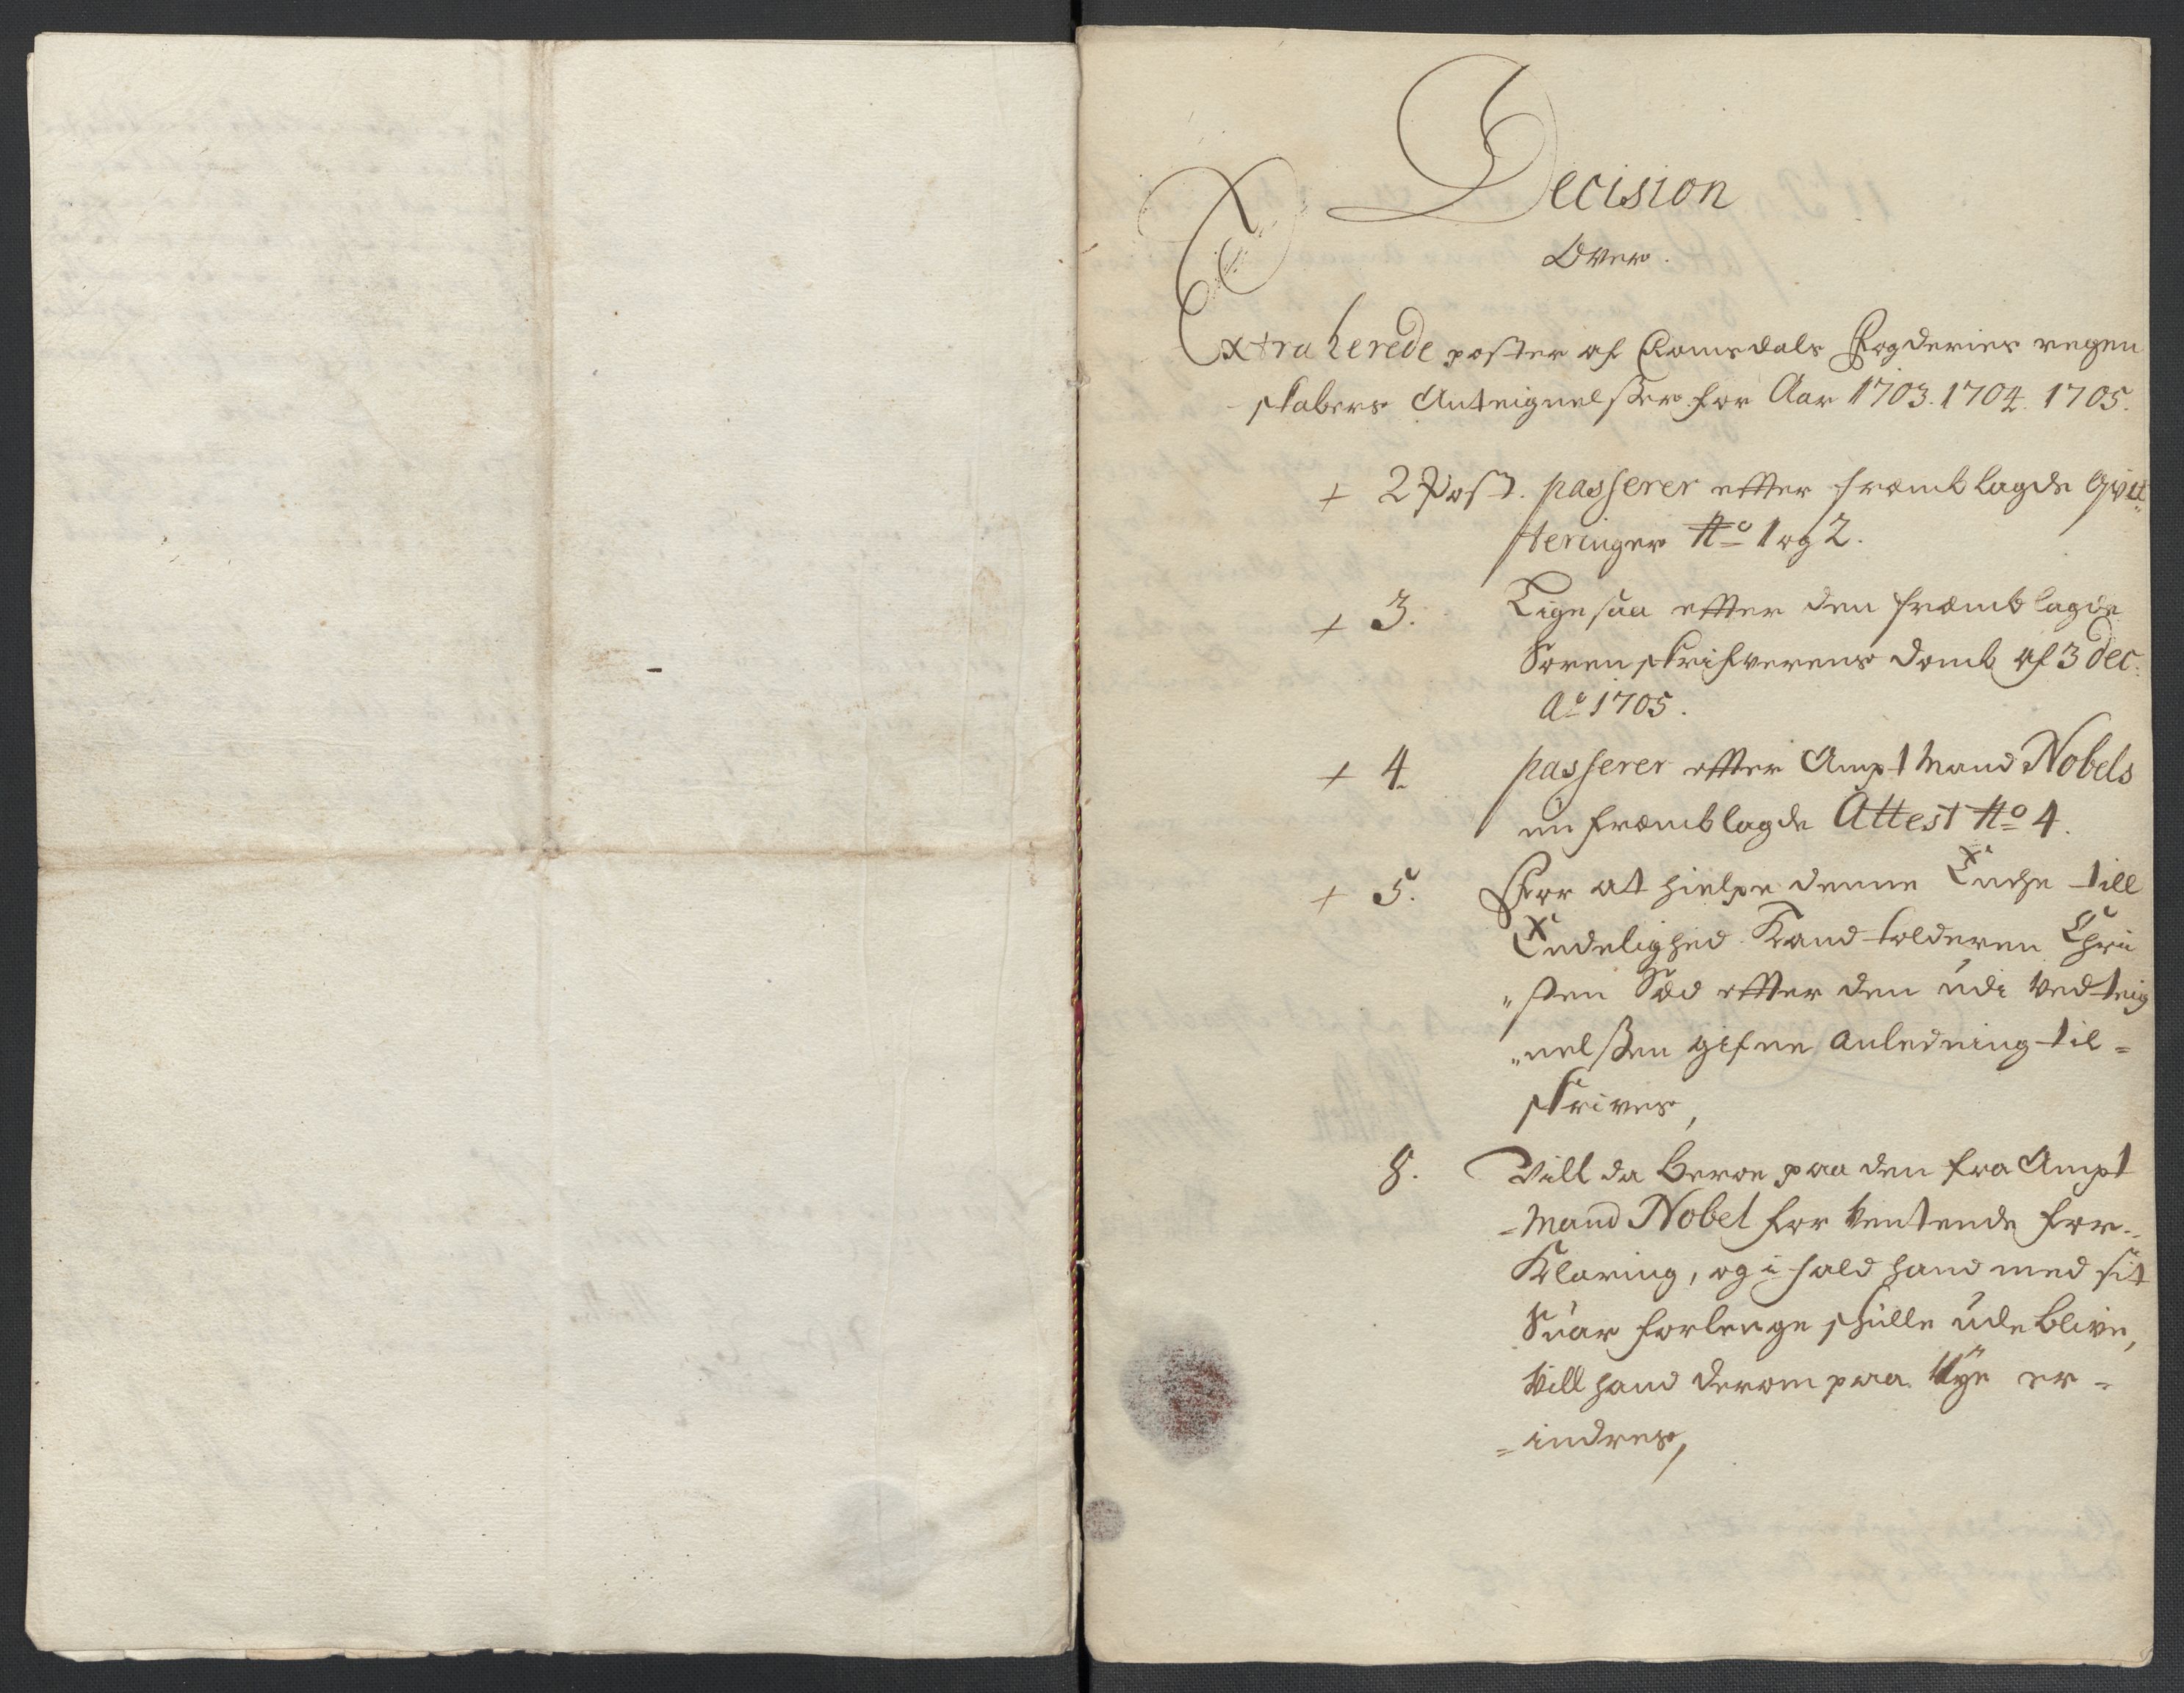 Decision
Over.
Extraherede poster af Romsdals Fogderies regen
skabers Anteignelsser for Aar 1703. 1704. 1705.
+ 2 Post. passerer efter fremblagde Qvit„
teringer No 1 og 2.
+ 3. Ligesaa efter den fremblagde
Sorenskrifverens domb af 3 dec.
Ao 1705.
+ 4. passerer efter Ampt Mand Nobels
nu fremblagde Attest No 4.
+ 5. For at hielpe denne till
Endelighed Kand tolderen Chri
„sten efter den udi Vedteig
„nelssen gifne anledning til=
skrives,
8. Vill da beroe paa den fra Ampt
=Mand Nobel forventende for=
Klaring, og i fald hand med sit
Suar forlenge skulle udeblive,
Vill hand derom paa Nye er=
=indres,